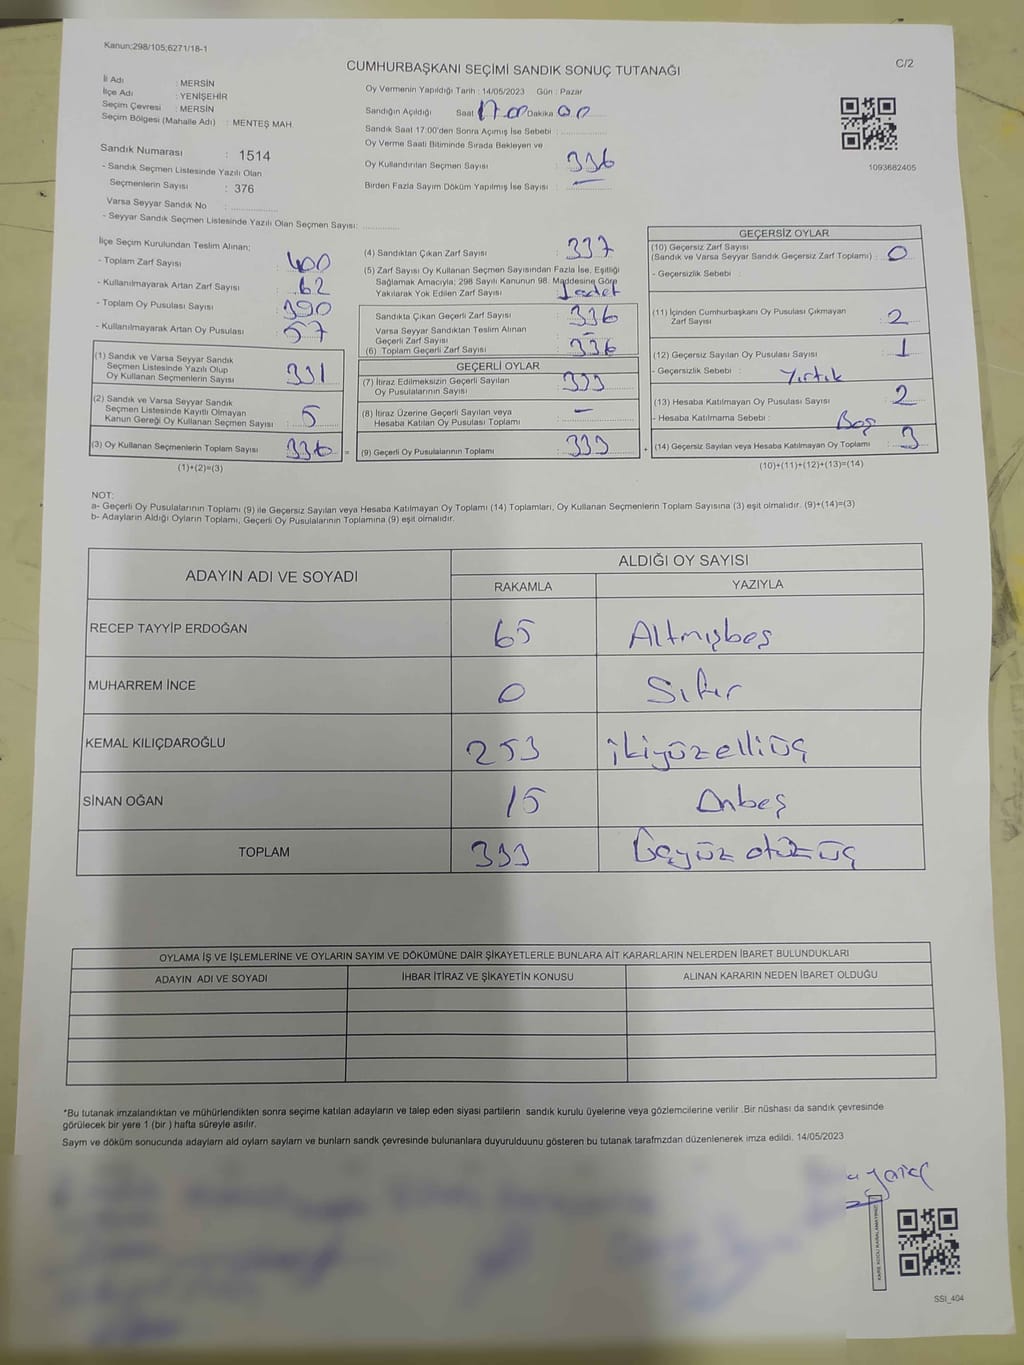 Kanun;298/105;6271/18-1
C/2
CUMHURBAŞKANI SEÇİMİ SANDIK SONUÇ TUTANAĞI
İl Adı : MERSİN
İlçe Adı : YENİŞEHİR
Seçim Çevresi : MERSİN
Seçim Bölgesi (Mahalle Adı) : MENTEŞ MAH.
Sandık Numarası : 1514
- Sandık Seçmen Listesinde Yazılı Olan
Seçmenlerin Sayısı : 376
Varsa Seyyar Sandık No :
- Seyyar Sandık Seçmen Listesinde Yazılı Olan Seçmen Sayısı:
Oy Vermenin Yapıldığı Tarih : 14/05/2023 Gün : Pazar
Sandığın Açıldığı Saat 17.00 Dakika 00
Sandık Saat 17:00'den Sonra Açımış İse Sebebi :
Oy Verme Saati Bitiminde Sırada Bekleyen ve
Oy Kullandırılan Seçmen Sayısı : 336
Birden Fazla Sayım Döküm Yapılmış İse Sayısı : —
1093682405
İlçe Seçim Kurulundan Teslim Alınan:
- Toplam Zarf Sayısı : 400
- Kullanılmayarak Artan Zarf Sayısı : 62
- Toplam Oy Pusulası Sayısı : 390
- Kullanılmayarak Artan Oy Pusulası : 57
(1) Sandık ve Varsa Seyyar Sandık
Seçmen Listesinde Yazılı Olup
Oy Kullanan Seçmenlerin Sayısı : 331
(2) Sandık ve Varsa Seyyar Sandık
Seçmen Listesinde Kayıtlı Olmayan
Kanun Gereği Oy Kullanan Seçmen Sayısı : 5
(3) Oy Kullanan Seçmenlerin Toplam Sayısı : 336
(1)+(2)=(3)
(4) Sandıktan Çıkan Zarf Sayısı : 337
(5) Zarf Sayısı Oy Kullanan Seçmen Sayısından Fazla İse, Eşitliği
Sağlamak Amacıyla; 298 Sayılı Kanunun 98. Maddesine Göre
Yakılarak Yok Edilen Zarf Sayısı : 1 adet
Sandıkta Çıkan Geçerli Zarf Sayısı : 336
Varsa Seyyar Sandıktan Teslim Alınan
Geçerli Zarf Sayısı : —
(6) Toplam Geçerli Zarf Sayısı : 336
GEÇERLİ OYLAR
(7) İtiraz Edilmeksizin Geçerli Sayılan
Oy Pusulalarının Sayısı : 333
(8) İtiraz Üzerine Geçerli Sayılan veya
Hesaba Katılan Oy Pusulası Toplamı : —
= (9) Geçerli Oy Pusulalarının Toplamı : 333 +
GEÇERSİZ OYLAR
(10) Geçersiz Zarf Sayısı
(Sandık ve Varsa Seyyar Sandık Geçersiz Zarf Toplamı) : 0
- Geçersizlik Sebebi :
(11) İçinden Cumhurbaşkanı Oy Pusulası Çıkmayan
Zarf Sayısı : 2
(12) Geçersiz Sayılan Oy Pusulası Sayısı : 1
- Geçersizlik Sebebi : Yırtık
(13) Hesaba Katılmayan Oy Pusulası Sayısı : 2
- Hesaba Katılmama Sebebi : Boş
(14) Geçersiz Sayılan veya Hesaba Katılmayan Oy Toplamı : 3
(10)+(11)+(12)+(13)=(14)
NOT:
a- Geçerli Oy Pusulalarının Toplamı (9) ile Geçersiz Sayılan veya Hesaba Katılmayan Oy Toplamı (14) Toplamları, Oy Kullanan Seçmenlerin Toplam Sayısına (3) eşit olmalıdır. (9)+(14)=(3)
b- Adayların Aldığı Oyların Toplamı, Geçerli Oy Pusulalarının Toplamına (9) eşit olmalıdır.
ADAYIN ADI VE SOYADI
ALDIĞI OY SAYISI
RAKAMLA YAZIYLA
RECEP TAYYİP ERDOĞAN 65 Altmışbeş
MUHARREM İNCE 0 Sıfır
KEMAL KILIÇDAROĞLU 253 ikiyüzelliüç
SİNAN OĞAN 15 Onbeş
TOPLAM 333 Üçyüz otuzüç
OYLAMA İŞ VE İŞLEMLERİNE VE OYLARIN SAYIM VE DÖKÜMÜNE DAİR ŞİKAYETLERLE BUNLARA AİT KARARLARIN NELERDEN İBARET BULUNDUKLARI
ADAYIN ADI VE SOYADI İHBAR İTİRAZ VE ŞİKAYETİN KONUSU ALINAN KARARIN NEDEN İBARET OLDUĞU
*Bu tutanak imzalandıktan ve mühürlendikten sonra seçime katılan adayların ve talep eden siyasi partilerin sandık kurulu üyelerine veya gözlemcilerine verilir .Bir nüshası da sandık çevresinde
görülecek bir yere 1 (bir ) hafta süreyle asılır.
Saym ve döküm sonucunda adaylarn ald oylarn saylarn ve bunlarn sandk çevresinde bulunanlara duyurulduunu gösteren bu tutanak tarafmzdan düzenlenerek imza edildi. 14/05/2023
KARE KODU KARALAMAYINIZ
SSI_404